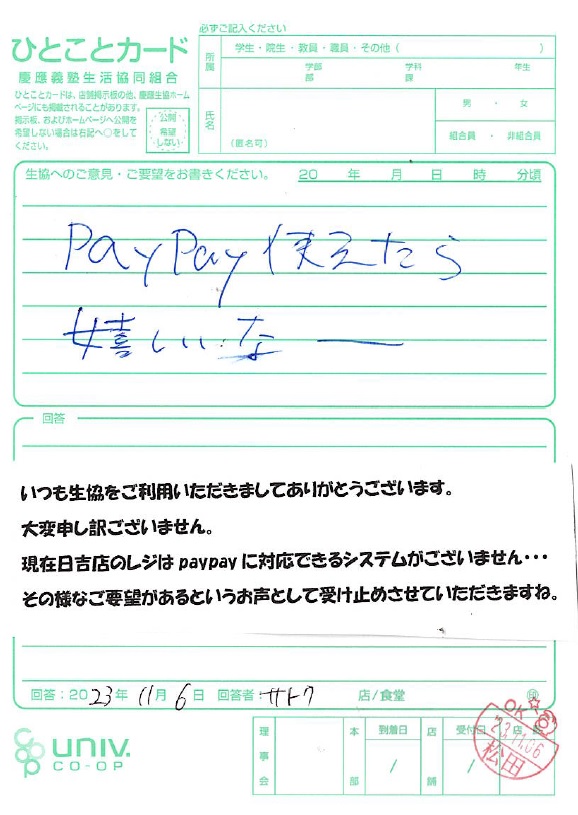 必ずご記入ください
ひとことカード
慶應義塾生活協同組合
ひとことカードは、店舗掲示板の他、慶應生協ホーム
ページにも掲載されることがあります。
掲示板、およびホームページへ公開を
希望しない場合は右記へ○をして
ください。
公開
希望
しない
所属
学生・院生・教員・職員・その他（ ）
学部 学科 年生
部 課
氏名
（匿名可）
男 ・ 女
組合員 ・ 非組合員
生協へのご意見・ご要望をお書きください。 20 年 月 日 時 分頃
PayPay使えたら
嬉しいなー
回答
いつも生協をご利用いただきましてありがとうございます。
大変申し訳ございません。
現在日吉店のレジは paypay に対応できるシステムがございません・・・
その様なご要望があるというお声として受け止めさせていただきますね。
回答：2023年 11月 6日 回答者：サトウ 店/食堂 印
univ.
CO-OP
理事会
本部
到着日
/
店舗
受付日
/
店
OK☆
23.11.06
松田